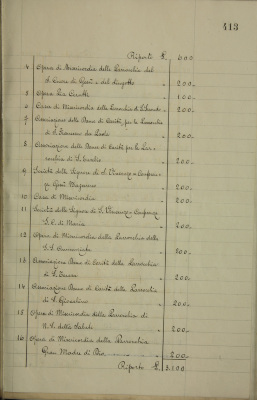 413
Riporti £. 600
4 Opera di Misericordia della Parrocchia del
S. Cuore di Gesù e del Lingotto " 200 -
5 Opera Pia " 100 -
6 Cassa di Misericordia della Parrocchia di " 200 -
7 Associazione delle Dame di Carità per la Parrocchia
di S. Francesco da Paola " 200 -
8 Associazione delle Dame di Carità per la Par-
rocchia di S. " 200 -
9 Società delle Signore di S. Vincenzo - Conferen-
za Gesù Nazareno " 200 -
10 Casa di Misericordia " 200 -
11 Società delle Signore di S. Vincenzo - Conferenza
S. C. di Maria " 200 -
12 Opera di Misericordia della Parrocchia della
SS. Annunziata " 300 -
13 Associazione Dame di Carità della Parrocchia
di S. Teresa " 200 -
14 Associazione Dame di Carità della Parrocchia
di S. Gioachino " 200 -
15 Opera di Misericordia della Parrocchia di
N. S. della Salute " 200 -
16 Opera di Misericordia della Parrocchia
Gran Madre di Dio " 200 -
Riporto £. 3.100